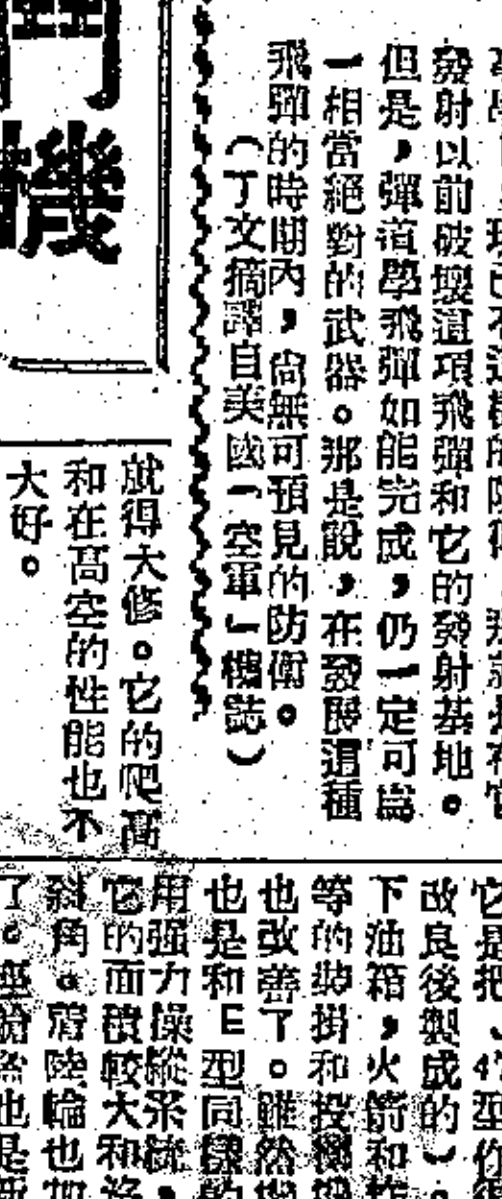 發射以前破壞這項飛彈和它的發射基地。
但是，彈道學飛彈如能完成，仍一定可爲
一相當絕對的武器。那是說，在發展這種
飛彈的時期內，尙無可預見的防禦。
（丁文摘譯自美國「空軍」雜誌）
鬥機
就得大修。它的爬高
和在高空的性能也不
大好。
它是把
改良後製成的）
下油箱，火箭和
等的裝掛和投擲
也改善了。雖然
也是和E型同樣的
用强力操縱系統，
它的面積較大和
斜角。着陸輪也加
了。座艙蓋也是